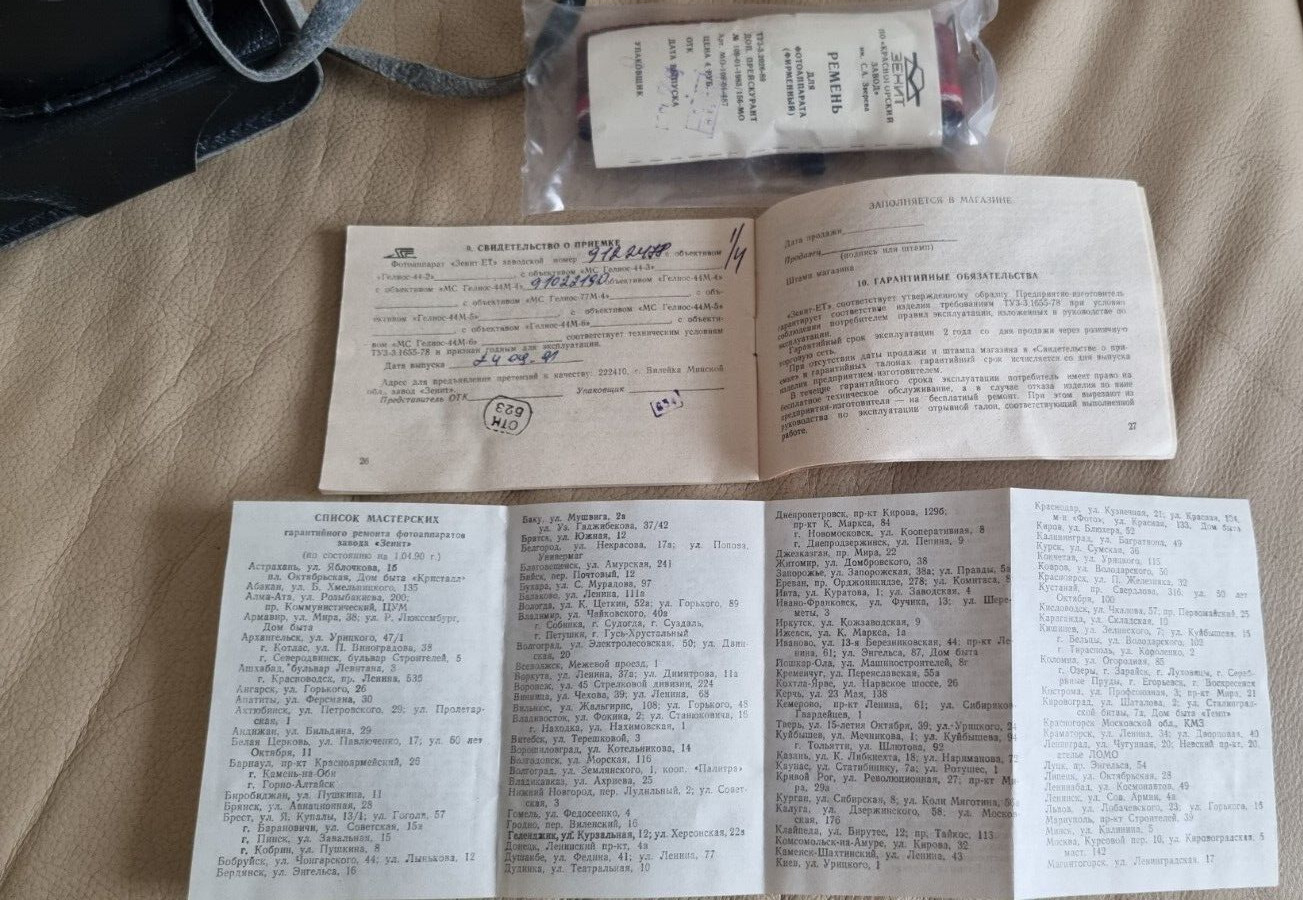 ПО «КРАСНОГОРСКИЙ
ЗАВОД»
им. С.А. Зверева
ЗЕНИТ
РЕМЕНЬ
ДЛЯ
ФОТОАППАРАТА
(ФИРМЕННЫЙ)
ДОП. ПРЕЙСКУРАНТ
ЦЕНА 4 РУБ.
ОТК
ДАТА ВЫПУСКА
УПАКОВЩИК
9. СВИДЕТЕЛЬСТВО О ПРИЕМКЕ
Фотоаппарат «Зенит-ЕТ» заводской номер 9122478 с объективом
«Гелиос-44-2» с объективом «МС Гелиос-44-3»
с объективом «МС Гелиос-44М-4» 91022190 объективом «Гелиос-44М-4»
с объективом «МС Гелиос-77М-4» с объ-
ективом «Гелиос-44М-5» с объективом «МС Гелиос-44М-5»
с объективом «Гелиос-44М-6» с объекти-
вом «МС Гелиос-44М-6» соответствует техническим условиям
ТУ3-3.1655-78 и признан годным для эксплуатации.
Дата выпуска 24 09. 91
Адрес для предъявления претензий к качеству: 222410, г. Вилейка Минской
обл., завод «Зенит».
Представитель ОТК Упаковщик
ОТК
623
26
1/4
ЗАПОЛНЯЕТСЯ В МАГАЗИНЕ
Дата продажи
Продавец (подпись или штамп)
Штамп магазина
10. ГАРАНТИЙНЫЕ ОБЯЗАТЕЛЬСТВА
«Зенит-ЕТ» соответствует утвержденному образцу. Предприятие-изготовитель
гарантирует соответствие изделия требованиям ТУ3-3.1655-78 при условии
соблюдения потребителем правил эксплуатации, изложенных в руководстве по
эксплуатации.
Гарантийный срок эксплуатации 2 года со дня продажи через розничную
торговую сеть.
При отсутствии даты продажи и штампа магазина в «Свидетельстве о при-
емке» и гарантийных талонах гарантийный срок исчисляется со дня выпуска
изделия предприятием-изготовителем.
В течение гарантийного срока эксплуатации потребитель имеет право на
бесплатное техническое обслуживание, а в случае отказа изделия по вине
предприятия-изготовителя — на бесплатный ремонт. При этом вырезают из
руководства по эксплуатации отрывной талон, соответствующий выполненной
работе.
27
СПИСОК МАСТЕРСКИХ
гарантийного ремонта фотоаппаратов
завода «Зенит»
(по состоянию на 1.04.90 г.)
Астрахань, ул. Яблочкова, 1б
пл. Октябрьская, Дом быта «Кристалл»
Абакан, ул. Б. Хмельницкого, 135
Алма-Ата, ул. Розыбакиева, 200;
пр. Коммунистический, ЦУМ
Армавир, ул. Мира, 38; ул. Р. Люксембург,
Дом быта
Архангельск, ул. Урицкого, 47/1
г. Котлас, ул. П. Виноградова, 38
г. Северодвинск, бульвар Строителей, 5
Ашхабад, бульвар Левитана, 3
г. Красноводск, пр. Ленина, 53б
Ангарск, ул. Горького, 26
Апатиты, ул. Ферсмана, 30
Актюбинск, ул. Петровского, 29; ул. Пролетар-
ская, 1
Андижан, ул. Бильдина, 29
Белая Церковь, ул. Павлюченко, 17; ул. 50 лет
Октября, 11
Барнаул, пр-кт Красноармейский, 26
г. Камень-на-Оби
г. Горно-Алтайск
Биробиджан, ул. Пушкина, 11
Брянск, ул. Авиационная, 28
Брест, ул. Я. Купалы, 13/1; ул. Гоголя, 57
г. Барановичи, ул. Советская, 15а
г. Пинск, ул. Завальная, 15
г. Кобрин, ул. Пушкина, 8
Бобруйск, ул. Чонгарского, 44; ул. Лынькова, 12
Бердянск, ул. Энгельса, 16
Баку, ул. Мушвига, 2а
ул. Уз. Гаджибекова, 37/42
Братск, ул. Южная, 12
Белгород, ул. Некрасова, 17а; ул. Попова,
Универмаг
Благовещенск, ул. Амурская, 241
Бийск, пер. Почтовый, 12
Бухара, ул. С. Мурадова, 97
Балаково, ул. Ленина, 111а
Вологда, ул. К. Цеткин, 52а; ул. Горького, 89
Владимир, ул. Чайковского, 40а
г. Собинка, г. Судогда, г. Суздаль,
г. Петушки, г. Гусь-Хрустальный
Волгоград, ул. Электролесовская, 50; ул. Двин-
ская, 20
Всеволжск, Межевой проезд, 1
Воркута, ул. Ленина, 37а; ул. Димитрова, 11а
Воронеж, ул. 45 Стрелковой дивизии, 224
Винница, ул. Чехова, 39; ул. Ленина, 68
Вильнюс, ул. Жальгирис, 108; ул. Горького, 48
Владивосток, ул. Фокина, 2; ул. Станюковича, 16
г. Находка, ул. Нахимовская, 1
Витебск, ул. Терешковой, 3
Ворошиловград, ул. Котельникова, 14
Волгодонск, ул. Морская, 116
Волгоград, ул. Землянского, 1, кооп. «Палитра»
Владикавказ, ул. Ахриева, 25
Нижний Новгород, пер. Лудильный, 2; ул. Совет-
ская, 3
Гомель, ул. Федосеенко, 4
Гродно, пер. Виленский, 16
Геленджик, ул. Курзальная, 12; ул. Херсонская, 22а
Донецк, Ленинский пр-кт, 4а
Душанбе, ул. Федина, 41; ул. Ленина, 77
Дудинка, ул. Театральная, 10
Днепропетровск, пр-кт Кирова, 129б;
пр-кт К. Маркса, 84
г. Новомосковск, ул. Кооперативная, 8
г. Днепродзержинск, ул. Ленина, 9
Джезказган, пр. Мира, 22
Житомир, ул. Домбровского, 38
Запорожье, ул. Запорожская, 38а; ул. Правды, 5а
Ереван, пр. Орджоникидзе, 278; ул. Комитаса, 8
Инта, ул. Куратова, 1; ул. Заводская, 4
Ивано-Франковск, ул. Фучика, 13; ул. Шере-
меты, 3
Иркутск, ул. Кожзаводская, 9
Ижевск, ул. К. Маркса, 1а
Иваново, ул. 13-я Березниковская, 44; пр-кт Ле-
нина, 61; ул. Энгельса, 87, Дом быта
Йошкар-Ола, ул. Машиностроителей, 8г
Кременчуг, ул. Переяславская, 55а
Кохтла-Ярве, ул. Нарвское шоссе, 26
Керчь, ул. 23 Мая, 138
Кемерово, пр-кт Ленина, 61; ул. Сибиряков-
Гвардейцев, 1
Тверь, ул. 15-летия Октября, 39; ул. Урицкого, 24
Куйбышев, ул. Мечникова, 1; ул. Куйбышева, 94
г. Тольятти, ул. Шлютова, 92
Казань, ул. К. Либкнехта, 18; ул. Нариманова, 72
Каунас, ул. Статибнинку, 7а; ул. Ротушес, 1
Кривой Рог, ул. Революционная, 27; пр-кт Ми-
ра, 29а
Курган, ул. Сибирская, 8; ул. Коли Мяготина, 56
Калуга, ул. Дзержинского, 58; ул. Москов-
ская, 176
Клайпеда, ул. Бирутес, 12; пр. Тайкос, 113
Комсомольск-на-Амуре, ул. Кирова, 32
Каменск-Шахтинский, ул. Ленина, 43
Киев, ул. Урицкого, 1
Краснодар, ул. Кузнечная, 21; ул. Красная,
м-н «Фото»; ул. Красная, 133, Дом быта
Киров, ул. Блюхера, 52
Калининград, ул. Багратиона, 49
Курск, ул. Сумская, 36
Кокчетав, ул. Урицкого, 115
Ковров, ул. Володарского, 50
Красноярск, ул. П. Железняка, 32
Кустанай, пр. Свердлова, 316; ул. 50 лет
Октября, 100
Кисловодск, ул. Чкалова, 57; пр. Первомайский, 25
Караганда, ул. Складская, 10
Кишинев, ул. Зелинского, 7; ул. Куйбышева, 15
г. Бельцы, ул. Володарского, 102
г. Тирасполь, ул. Короленко, 2
Коломна, ул. Огородная, 85
г. Озеры, г. Зарайск, г. Луховицы, г. Сереб-
ряные Пруды, г. Егорьевск, г. Воскресенск
Кострома, ул. Профсоюзная, 3; пр-кт Мира, 21
Кировоград, ул. Шаталова, 2; ул. Сталинград-
ской битвы, 7а, Дом быта «Темп»
Красногорск Московской обл., КМЗ
Краматорск, ул. Ленина, 34; ул. Дворцовая, 40
Ленинград, ул. Чугунная, 20; Невский пр-кт, 20,
ателье ЛОМО
Луцк, пр. Энгельса, 54
Липецк, ул. Октябрьская, 28
Ленинабад, ул. Космонавтов, 49
Ленинск, ул. Сов. Армии, 4а
Львов, ул. Лобачевского, 23; ул. Горького, 16
Мариуполь, пр-кт Строителей, 39
Минск, ул. Калинина, 5
Москва, Курсовой пер. 10, ул. Кировоградская, 5
маст. 142
Магнитогорск, ул. Ленинградская, 17